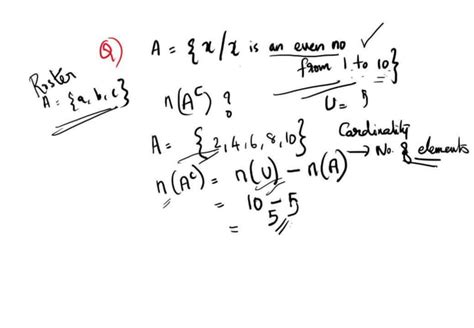 Q) A = {x/x is an even no
from 1 to 10}
Roster
A = {a, b, c}
n(A^c) ?
U =
A = {2, 4, 6, 8, 10}
Cardinality
→ No. of elements
n(A^c) = n(U) - n(A)
= 10 - 5
= 5